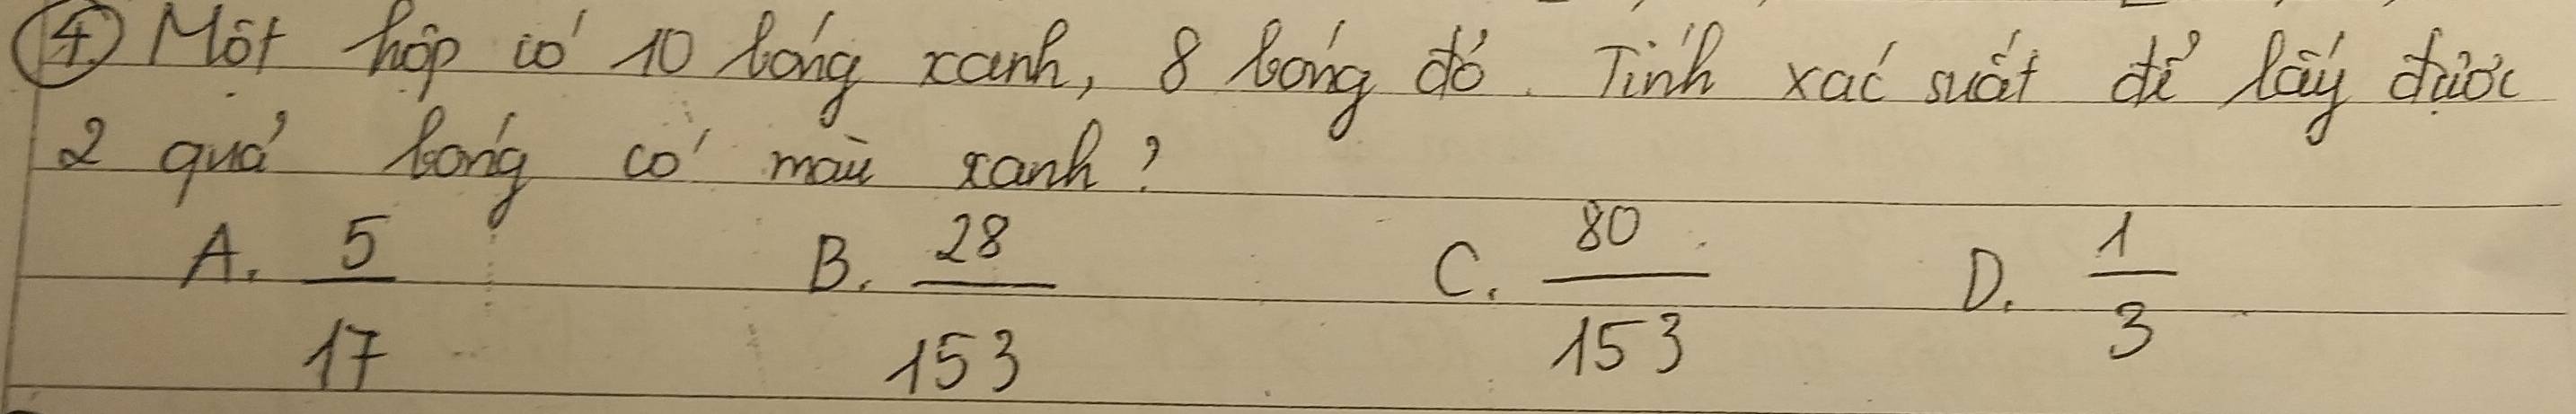 4. Một hộp có 10 bóng xanh, 8 bóng đỏ. Tính xác suất để lấy được
2 quả bóng có màu xanh?
A. 5/17 B. 28/153 C. 80/153 D. 1/3